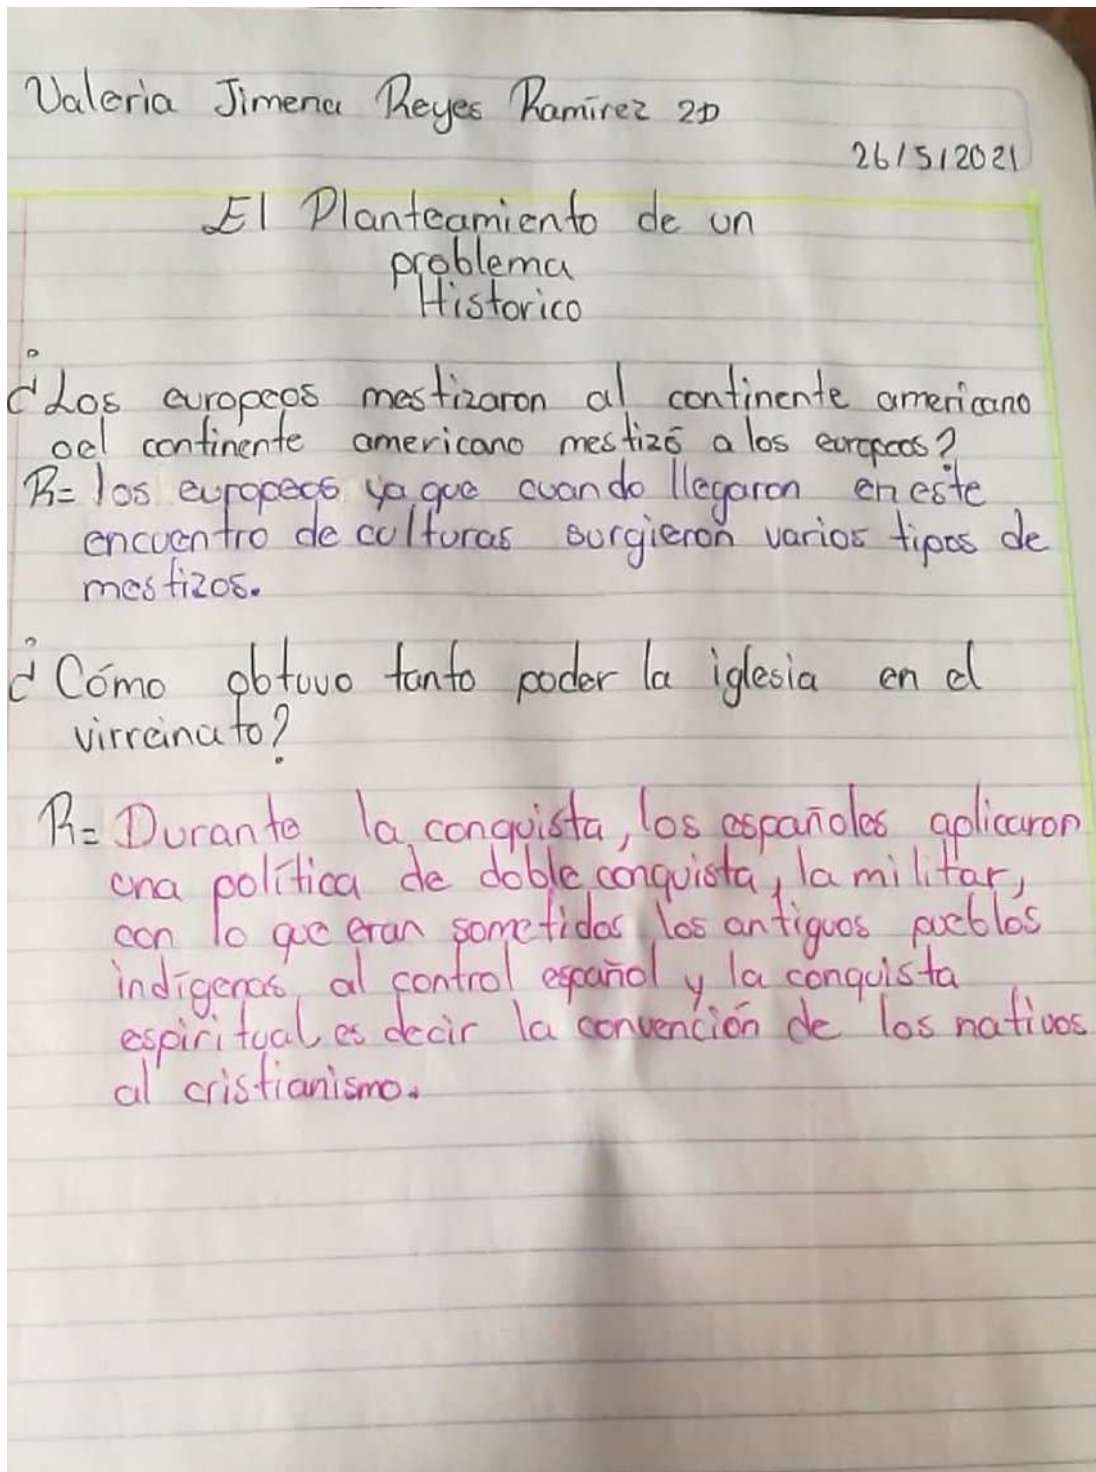 Valeria Jimena Reyes Ramírez 2D
26/5/2021
El Planteamiento de un
problema
Historico
¿Los europeos mestizaron al continente americano
oel continente americano mestizó a los europeos?
R= los europeos ya que cuando llegaron en este
encuentro de culturas surgieron varios tipos de
mestizos.
¿Cómo obtuvo tanto poder la iglesia en el
virreinato?
R= Durante la conquista, los españoles aplicaron
una política de doble conquista, la militar,
con lo que eran sometidos los antiguos pueblos
indígenas al control español y la conquista
espiritual es decir la convención de los nativos
al cristianismo.